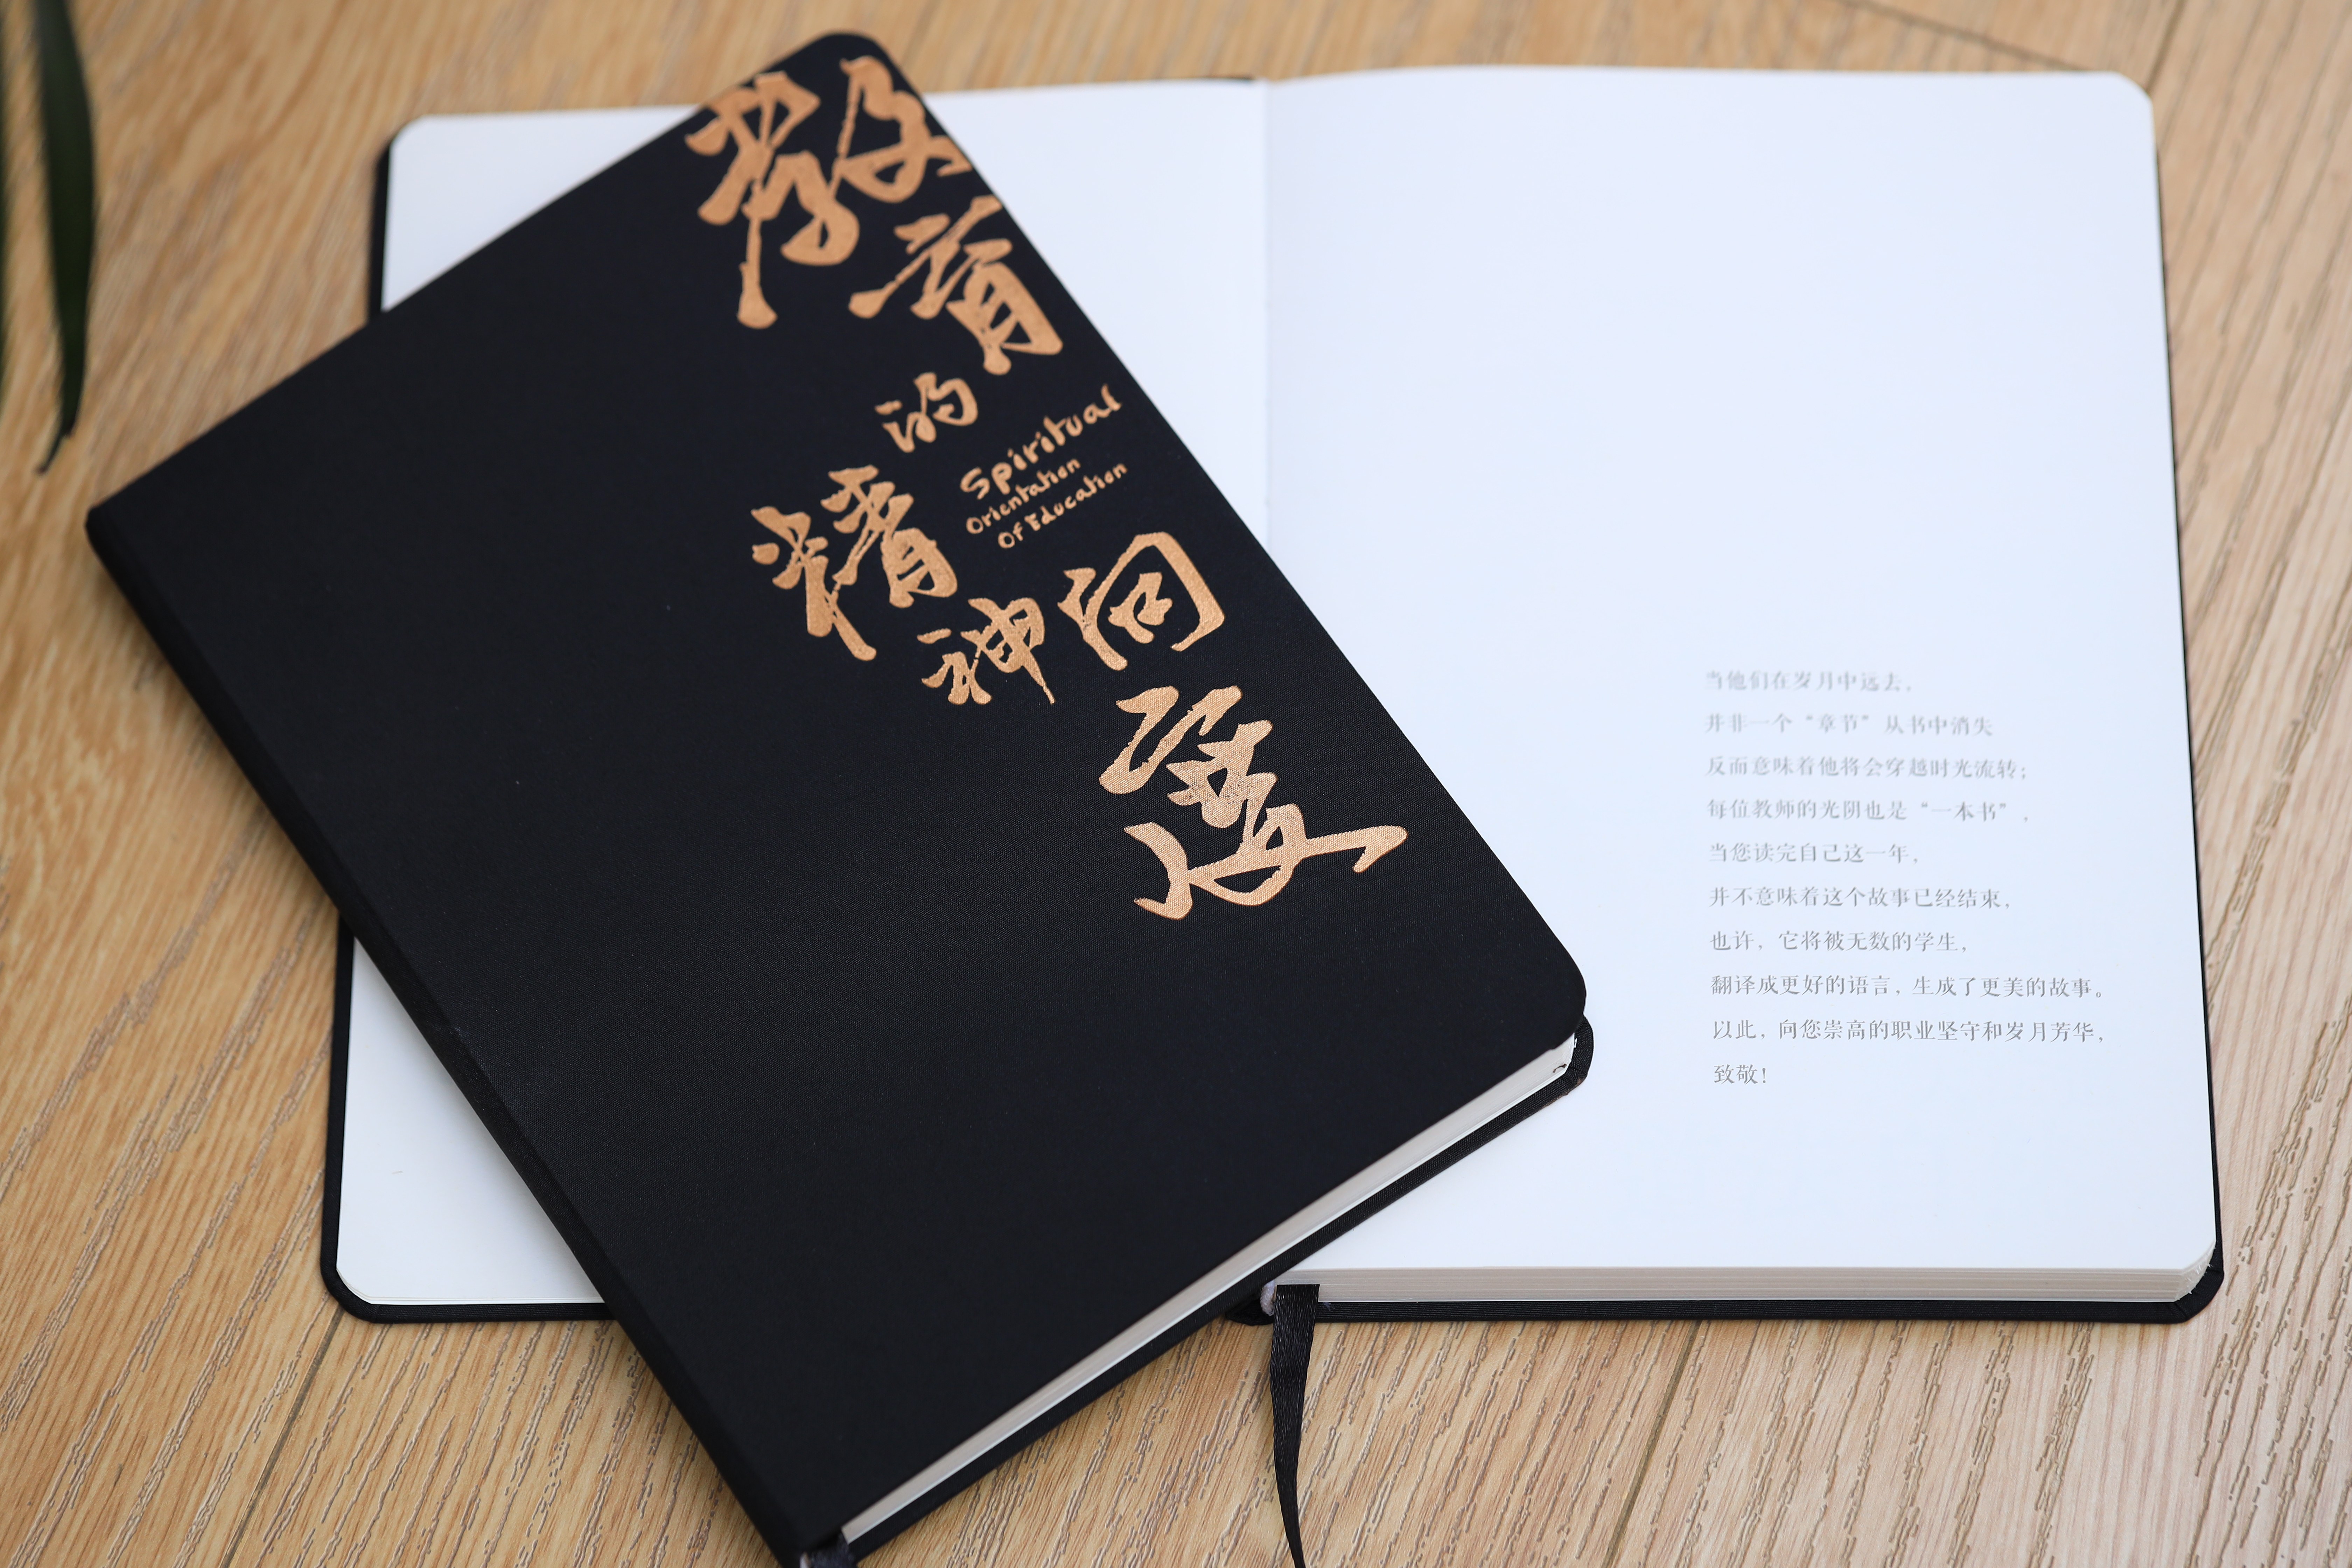 教育
的
Spiritual
Orientation
Of Education
精神向度
当他们在岁月中远去，
并非一个“章节”从书中消失
反而意味着他将会穿越时光流转；
每位教师的光阴也是“一本书”，
当您读完自己这一年，
并不意味着这个故事已经结束，
也许，它将被无数的学生，
翻译成更好的语言，生成了更美的故事。
以此，向您崇高的职业坚守和岁月芳华，
致敬！